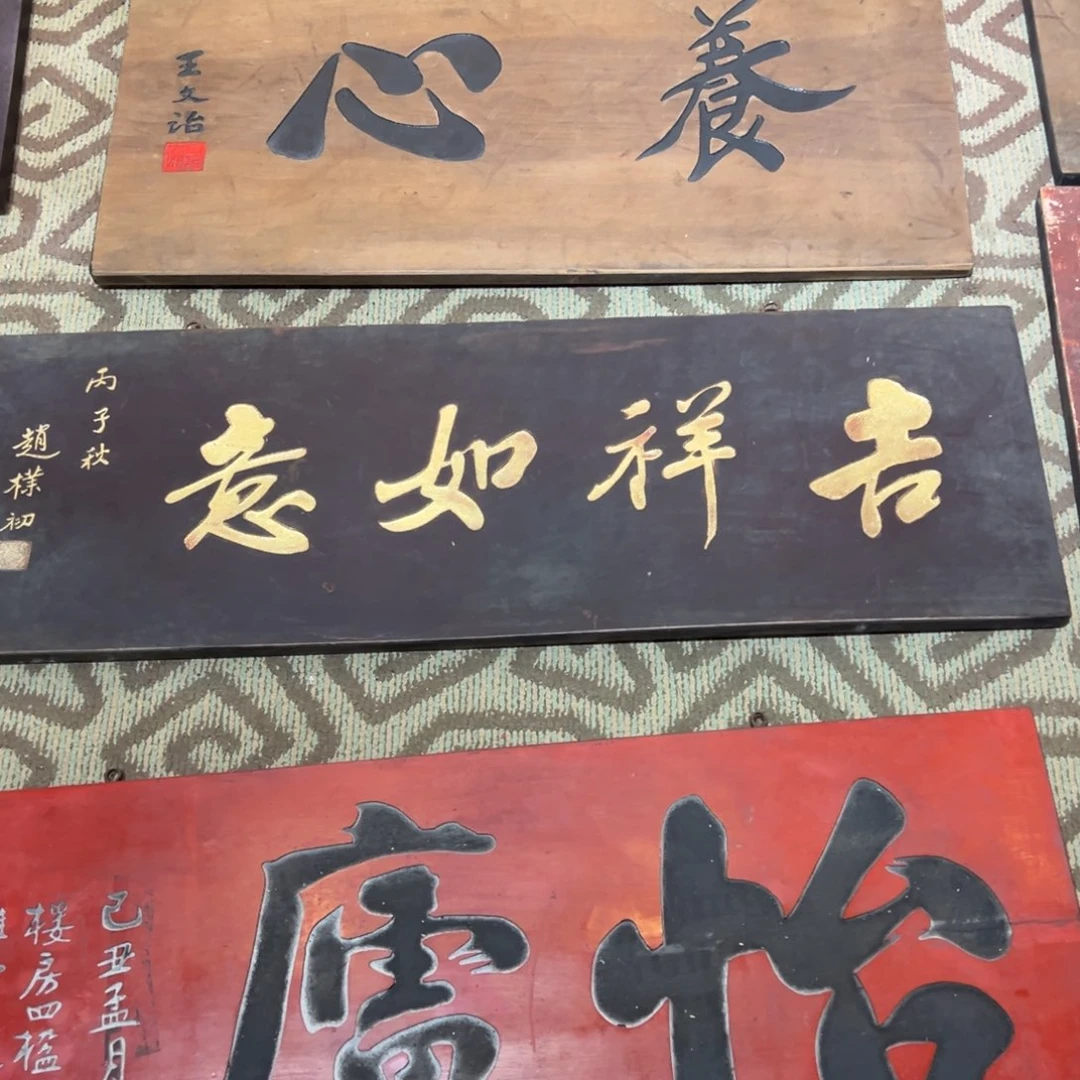 養心
王文治
吉祥如意
丙子秋
趙樸初
怡廬
己丑孟月
樓房四楹